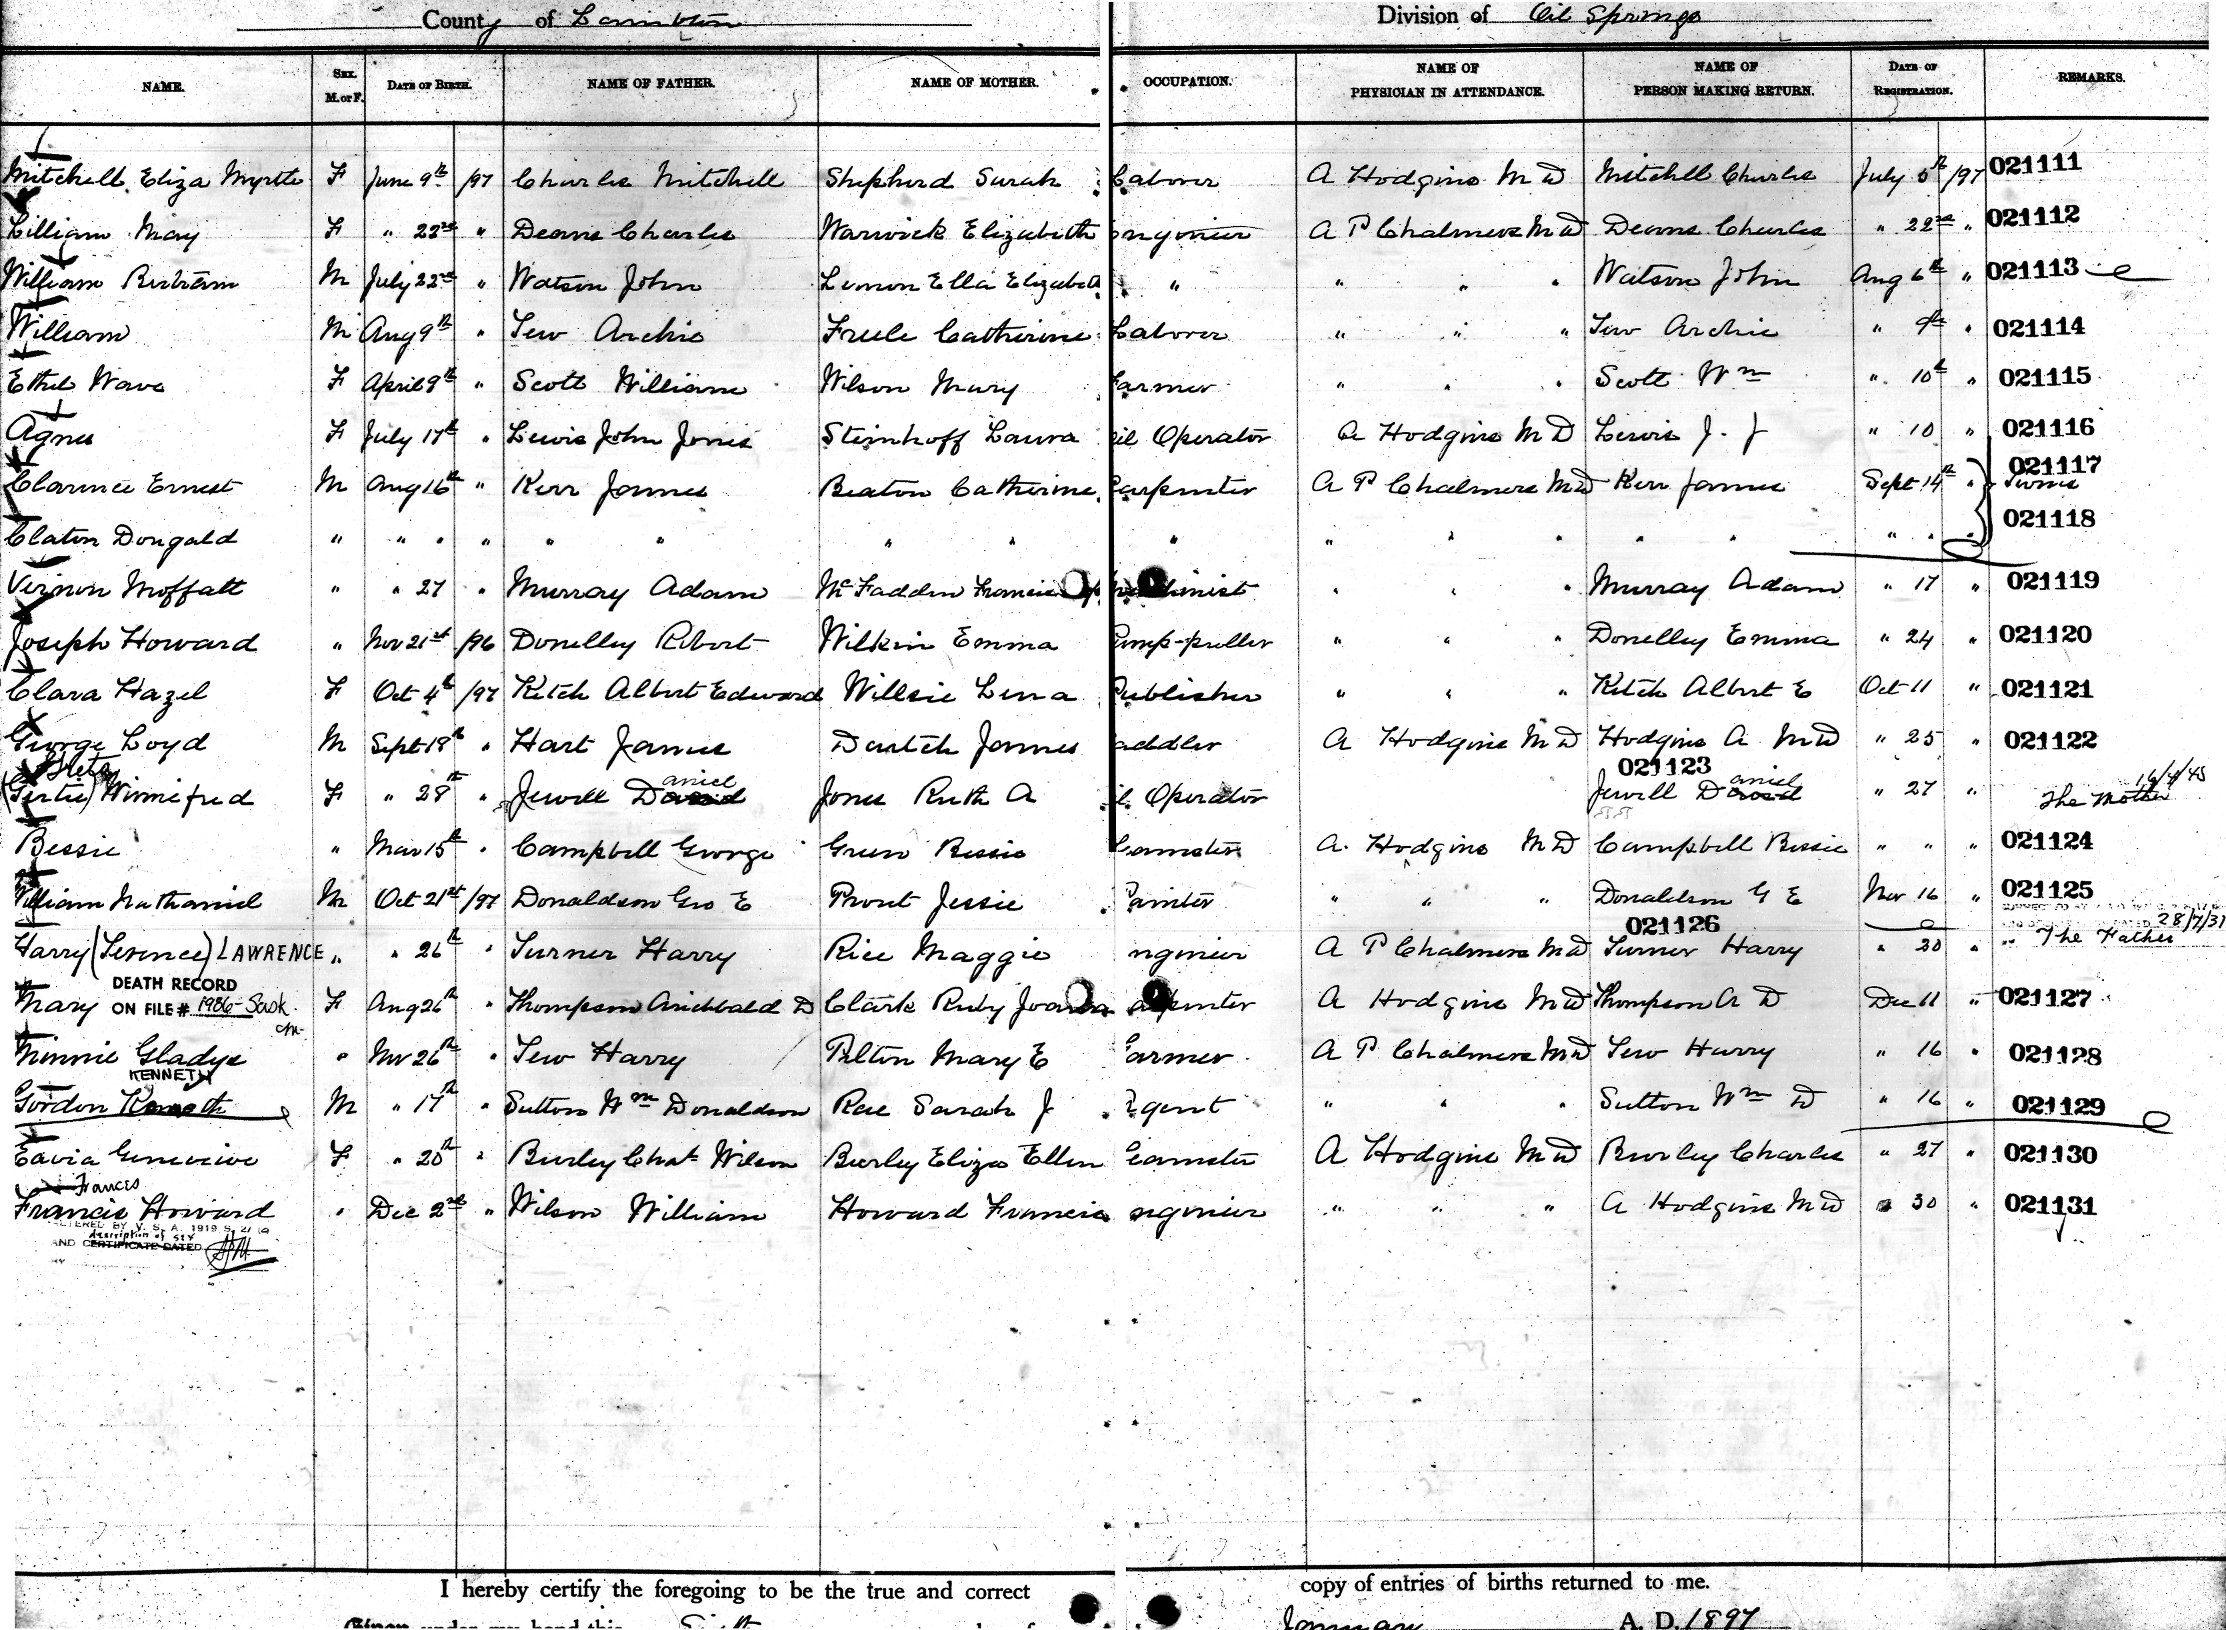 County of Lambton Division of Oil Springs
NAME. SEX. M. or F. DATE OF BIRTH. NAME OF FATHER. NAME OF MOTHER. OCCUPATION. NAME OF PHYSICIAN IN ATTENDANCE. NAME OF PERSON MAKING RETURN. DATE OF REGISTRATION. REMARKS.
Mitchell Eliza Myrtle F June 9th /97 Charles Mitchell Shepherd Sarah Laborer A Hodgins M D Mitchell Charles July 5th /97 021111
Lillian May F " 22nd " Deans Charles Warwick Elizabeth Engineer A P Chalmers M D Deans Charles " 22nd " 021112
William Bertram M July 22nd " Watson John Lemon Ella Elizabeth " " " " Watson John Aug 6th " 021113
William M Aug 9th " Tew Archie Freele Catherine Laborer " " " Tew Archie " 9th " 021114
Ethel Wave F April 9th " Scott William Wilson Mary Farmer " " " Scott Wm " 10th " 021115
Agnes F July 17th " Lewis John Jones Steinhoff Laura Oil Operator A Hodgins M D Lewis J. J " 10 " 021116
Clarence Ernest M Aug 16th " Kerr James Beaton Catherine Carpenter A P Chalmers M D Kerr James Sept 14th " 021117 Twins
Claton Dougald " " " " " " " " " " " " " " " " " 021118
Vernon Moffatt " " 27 " Murray Adam McFadden Francis Machinist " " " Murray Adam " 17 " 021119
Joseph Howard " Nov 21st /96 Donelley Robert Wilkin Emma Pump-puller " " " Donelley Emma " 24 " 021120
Clara Hazel F Oct 4th /97 Kitch Albert Edward Willsie Lena Publisher " " " Kitch Albert E Oct 11 " 021121
George Loyd M Sept 19th " Hart James Dautch James Saddler A Hodgins M D Hodgins A M D " 25 " 021122
Greta aniel 021123 aniel 16/4/45
(Gertie) Winnifred F " 28th " Jewell David Jones Ruth A Oil Operator Jewell David " 27 " The Mother
Bessie " Mar 15th " Campbell George Green Bessie Teamster A. Hodgins M D Campbell Bessie " " " 021124
William Nathaniel M Oct 21st /97 Donaldson Geo E Prout Jessie Painter " " " Donaldson G E Nov 16 " 021125
021126 28/7/31
Harry (Terence) LAWRENCE " " 26th " Turner Harry Rice Maggie Engineer A P Chalmers M D Turner Harry " 20 " The Father
DEATH RECORD
Mary ON FILE # 1986- Sask. F Aug 26th " Thompson Archibald D Clark Ruby Carpenter A Hodgins M D Thompson A D Dec 11 " 021127
Minnie Gladys " Nov 26th " Tew Harry Pelton Mary E Farmer A P Chalmers M D Tew Harry " 16 " 021128
KENNETH
Gordon Kenneth M " 17th " Sutton Wm Donaldson Rae Sarah J Agent " " " Sutton Wm D " 16 " 021129
Eavia Genevieve F " 20th " Burley Chas Wilson Burley Eliza Ellen Teamster A Hodgins M D Burley Charles " 27 " 021130
Frances
Francis Howard " Dec 2nd " Wilson William Howard Francis Engineer " " " A Hodgins M D " 30 " 021131
ALTERED BY V. S. A. 1919 S. 21
description of sex
AND CERTIFICATE DATED
I hereby certify the foregoing to be the true and correct copy of entries of births returned to me.
Given under my hand this January A. D. 1897